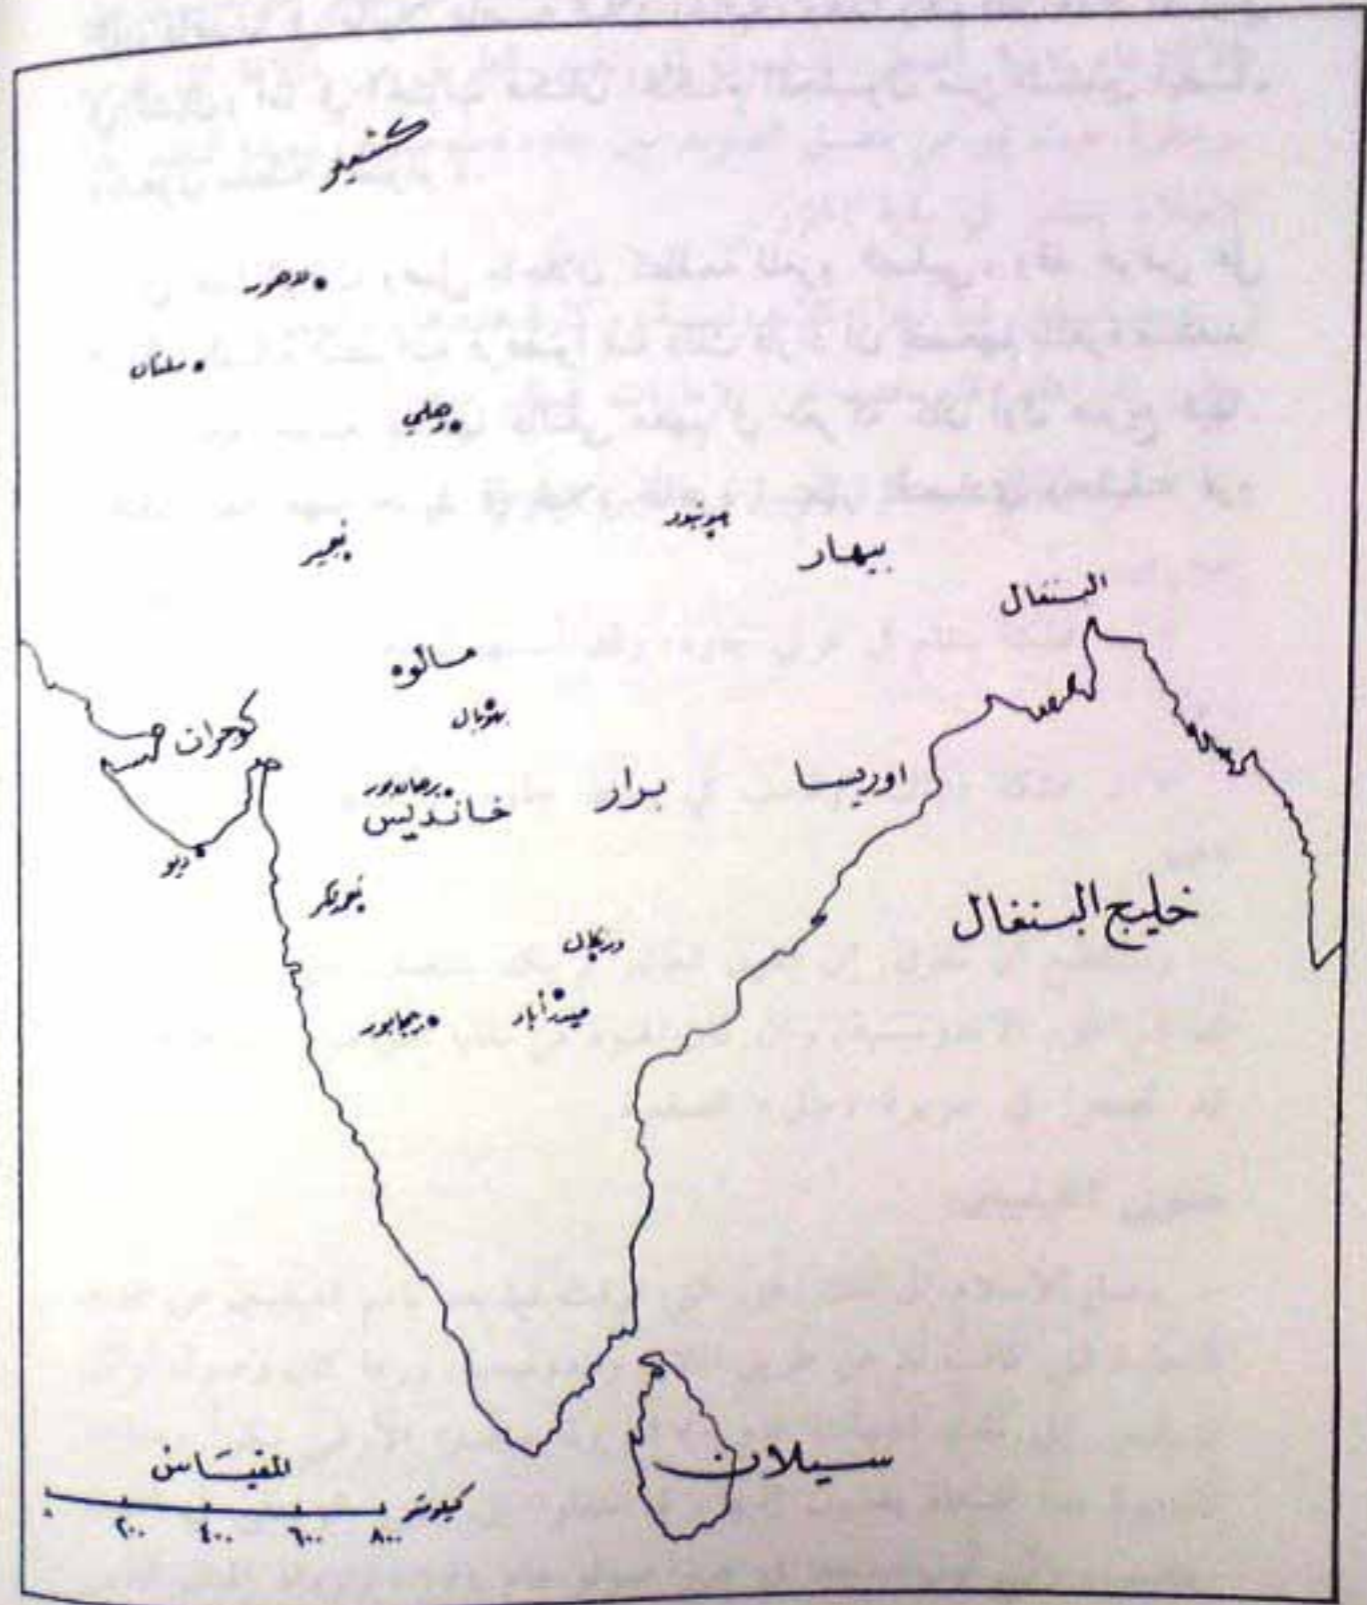 كشمير
لاهور
ملتان
دهلي
جونبور
بيهار
البنغال
مالوه
بهوبال
كوجرات
برهانبور
خانديس
برار
اوريسا
ديو
خليج البنغال
ورنكال
حيدرأباد
بيجابور
سيلان
المقياس
كيلومتر
٠ ٢٠٠ ٤٠٠ ٦٠٠ ٨٠٠